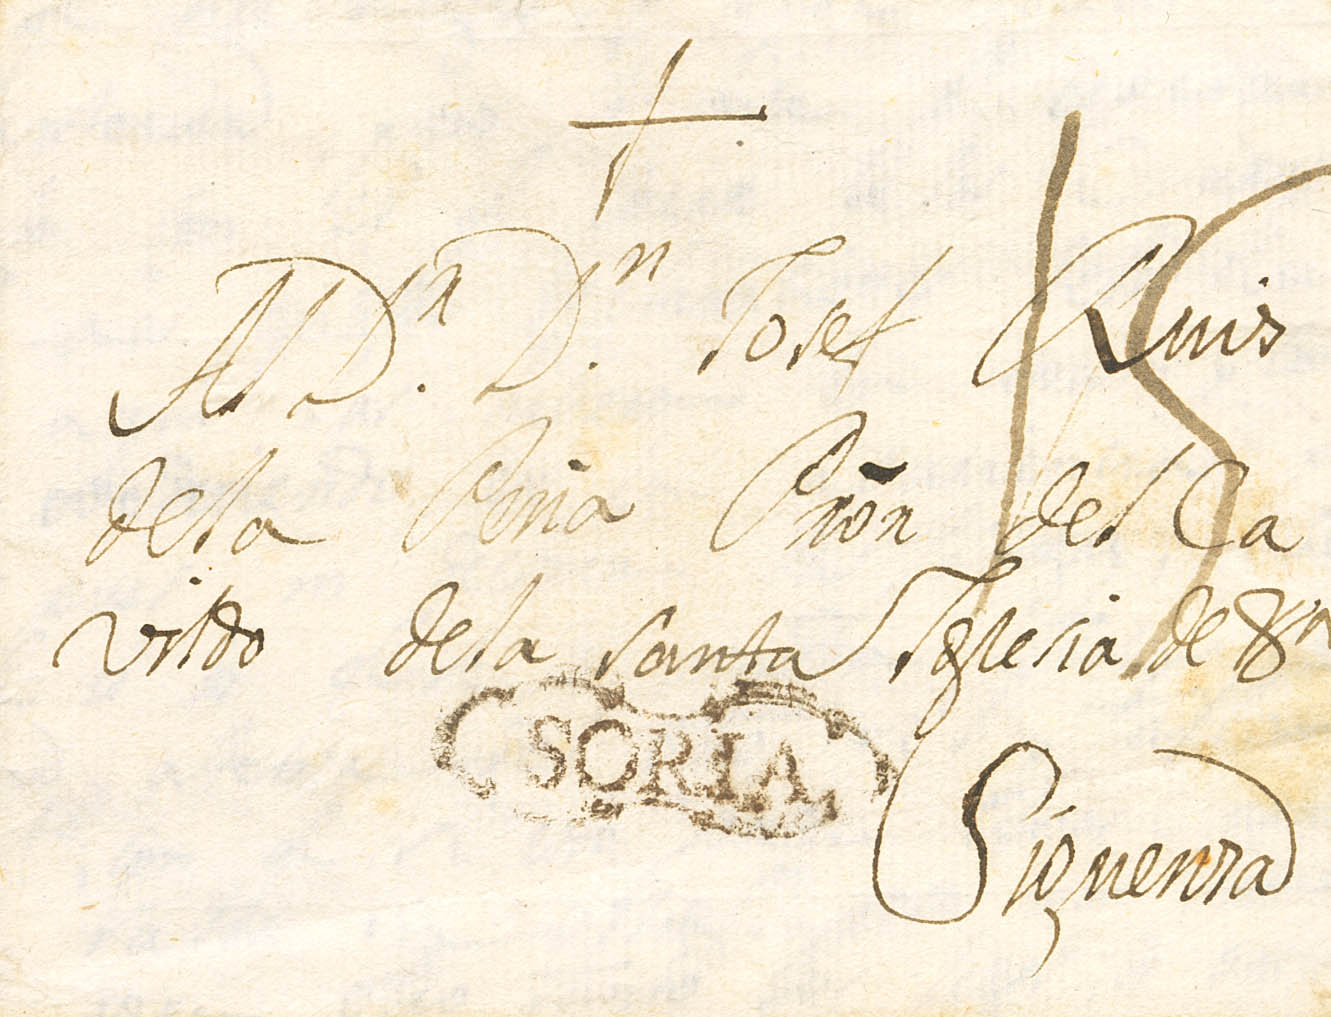 Al Dn. Dn. Josef Ruiz
dela Peña Prõn del Ca
vildo dela santa Yglesia de
SORIA
Siguenza